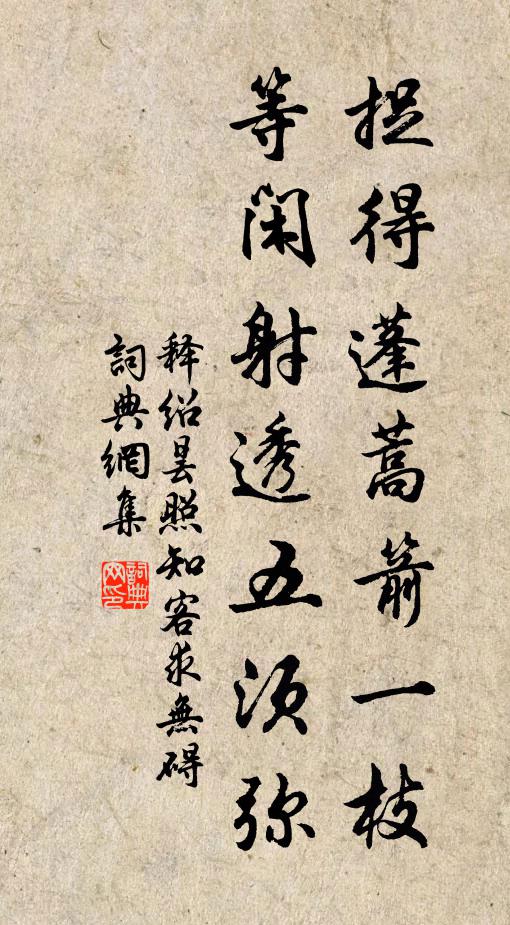 捉得蓬蒿箭一枝
等闲射透五须弥
释绍昙照知客求無碍
詞典網集
詞典网印